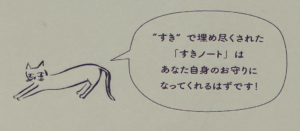 “すき” で埋め尽くされた
「すきノート」は
あなた自身のお守りに
なってくれるはずです！